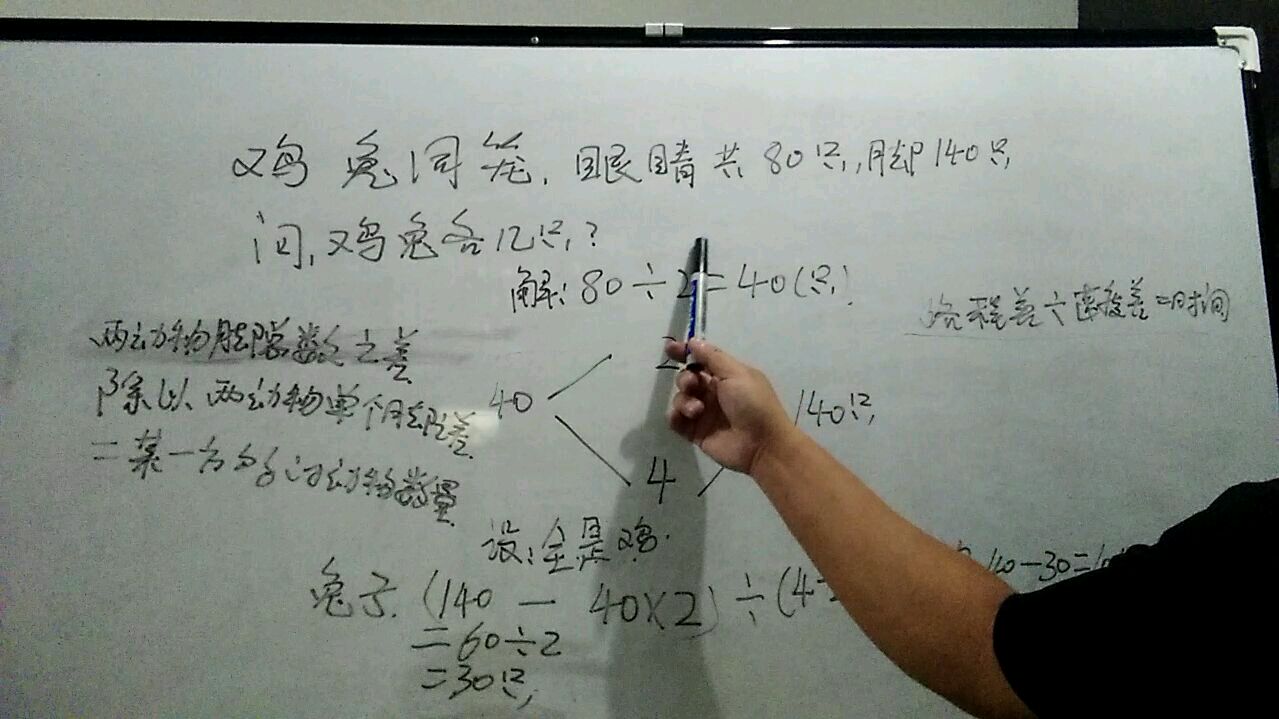 鸡兔同笼,眼睛共80只,脚140只
问,鸡兔各几只?
解:80÷2=40(只)
路程差÷速度差=时间
两动物脚只数之差
除以两动物单个脚差
=某一方的动物数量
40
2
4
140只
设:全是鸡.
兔子.(140-40×2)÷(4-
=60÷2
=30只
-30=